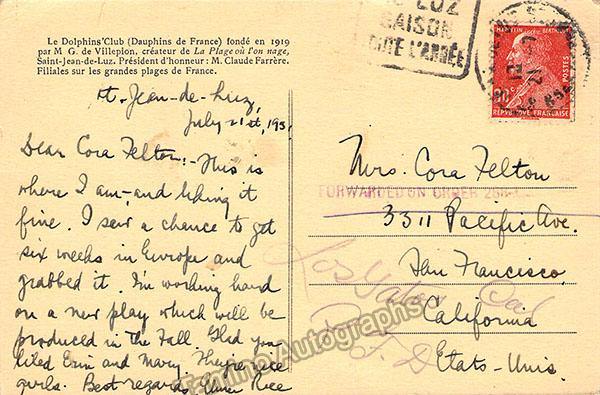 Le Dolphins'Club (Dauphins de France) fondé en 1919
par M G. de Villepion, créateur de La Plage où l'on nage,
Saint-Jean-de-Luz. Président d'honneur : M. Claude Farrère.
Filiales sur les grandes plages de France.
St-Jean-de-Luz,
July 21st, 193
Dear Cora Felton:- This is
where I am, and liking it
fine. I saw a chance to get
six weeks in Europe and
grabbed it. I'm working hard
on a new play which will be
produced in the Fall. Glad you
liked Erin and Mary. They're nice
girls. Best regards, Elmer Rice
LUZ
SAISON
TOUTE L'ANNÉE
POSTES
90c
RÉPUBLIQUE FRANÇAISE
Mrs. Cora Felton
FORWARDED ON ORDER
3311 Pacific Ave.
San Francisco
California
Etats-Unis.
Los Gatos Cal
R.F.D
Tamino Autographs